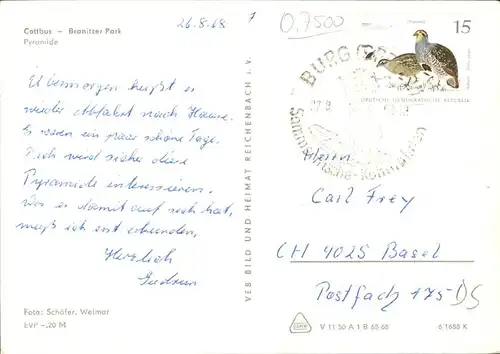 Cottbus – Branitzer Park
Pyramide
26.8.68
7
0,7500
15
DEUTSCHE DEMOKRATISCHE REPUBLIK
BURG (
heißt es
wieder Abfahrt nach Hause.
Es waren ein paar schöne Tage.
Dich wird sicher diese
Pyramide interessieren.
Was es damit auf sich hat,
muß ich erst erkunden.
Herzlich
Gudrun
VEB BILD UND HEIMAT REICHENBACH i. V.
Herrn
Carl Frey
CH 4025 Basel
Postfach 175 DS
Foto: Schäfer, Weimar
EVP –.20 M
V 11 50 A 1 B 68 68
6/1688 K